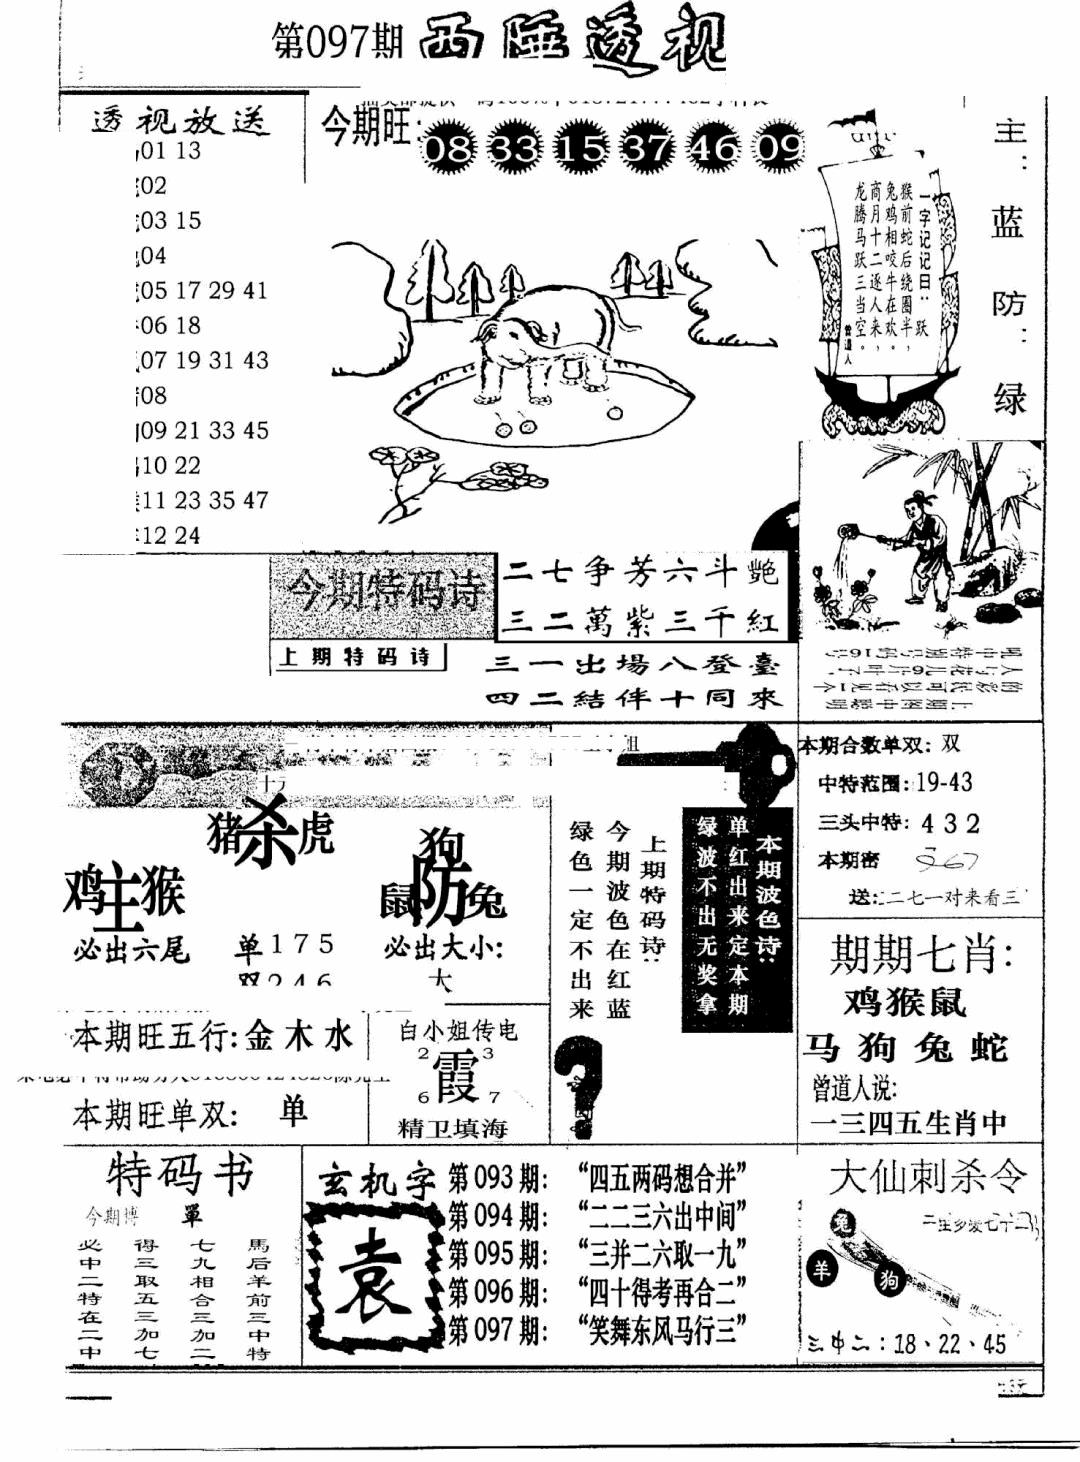 第097期 西陲透视
透视放送
01 13
02
03 15
04
05 17 29 41
06 18
07 19 31 43
08
09 21 33 45
10 22
11 23 35 47
12 24
今期旺:
08 33 15 37 46 09
一字记记曰：跃
猴前蛇后绕圈半，
兔鸡相咬牛在欢。
商月十二逐人来，
龙腾马跃三当空。
曾道人
主：蓝 防：绿
今期特码诗
二七争芳六斗艳
三二萬紫三千紅
上期特码诗
三一出場八登臺
四二結伴十同來
猪杀虎
鸡主猴
狗
鼠防兔
必出六尾
单175
双246
必出大小:
大
本期旺五行:金木水
本期旺单双: 单
白小姐传电
2 3
霞
6 7
精卫填海
本期波色诗:
单红出来定本期
绿波不出无奖拿
上期特码诗:
今期波色在红蓝
绿色一定不出来
本期合数单双: 双
中特范围:19-43
三头中特: 4 3 2
本期密
送:二七一对来看三
期期七肖:
鸡猴鼠
马狗兔蛇
曾道人说:
一三四五生肖中
特码书
今期博 單
馬后羊前三中特
七九相合三加二
得三取五三加七
必中二特在二中
玄机字
袁
第093期: “四五两码想合并”
第094期: “二二三六出中间”
第095期: “三并二六取一九”
第096期: “四十得考再合二”
第097期: “笑舞东风马行三”
大仙刺杀令
兔
羊
狗
三中二:18、22、45